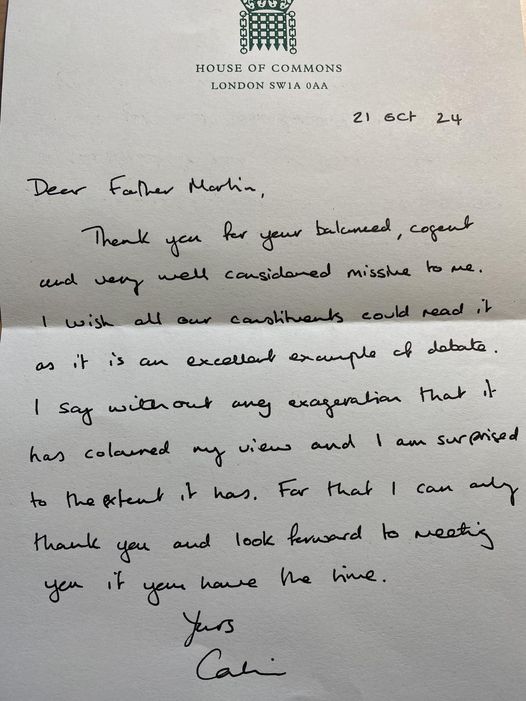 HOUSE OF COMMONS
LONDON SW1A 0AA
21 Oct 24
Dear Father Martin,
Thank you for your balanced, cogent
and very well considered missive to me.
I wish all our constituents could read it
as it is an excellent example of debate.
I say without any exageration that it
has coloured my view and I am surprised
to the extent it has. For that I can only
thank you and look forward to meeting
you if you have the time.
Yours